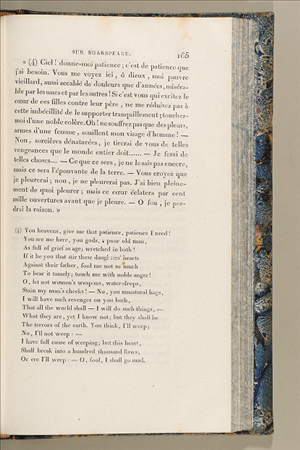 SUR SHAKSPEARE. 165
« (4) Ciel! donne-moi patience; c'est de patience que
j'ai besoin. Vous me voyez ici, ô dieux, moi pauvre
vieillard, aussi accablé de douleurs que d'années, miséra-
ble par les unes et par les autres! Si c'est vous qui excitez le
cœur de ces filles contre leur père, ne me réduisez pas à
cette imbécillité de le supporter tranquillement; touchez-
moi d'une noble colère. Oh! ne souffrez pas que des pleurs,
armes d'une femme, souillent mon visage d'homme! —
Non, sorcières dénaturées, je tirerai de vous de telles
vengeances que le monde entier doit...... — Je ferai de
telles choses.... — Ce que ce sera, je ne le sais pas encore,
mais ce sera l'épouvante de la terre. — Vous croyez que
je pleurerai; non, je ne pleurerai pas. J'ai bien pleine-
ment de quoi pleurer; mais ce cœur éclatera par cent
mille ouvertures avant que je pleure. — O fou, je per-
drai la raison. »
(4) You heavens, give me that patience, patience I need!
You see me here, you gods, a poor old man,
As full of grief as age; wretched in both!
If it be you that stir these daughters' hearts
Against their father, fool me not so much
To bear it tamely; touch me with noble anger!
O, let not women's weapons, water-drops,
Stain my man's cheeks! — No, you unnatural hags,
I will have such revenges on you both,
That all the world shall — I will do such things, —
What they are, yet I know not; but they shall be
The terrors of the earth. You think, I'll weep;
No, I'll not weep: —
I have full cause of weeping; but this heart,
Shall break into a hundred thousand flaws,
Or ere I'll weep: — O, fool, I shall go mad.